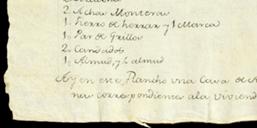 2. Achas Monteras
1. hierro de herrar y 1 Marca
1. Par de Grillos
2. Candados
1. Almud, y ½ almud
Ay en este Rancho una Casa de
correspondiente a la viviend